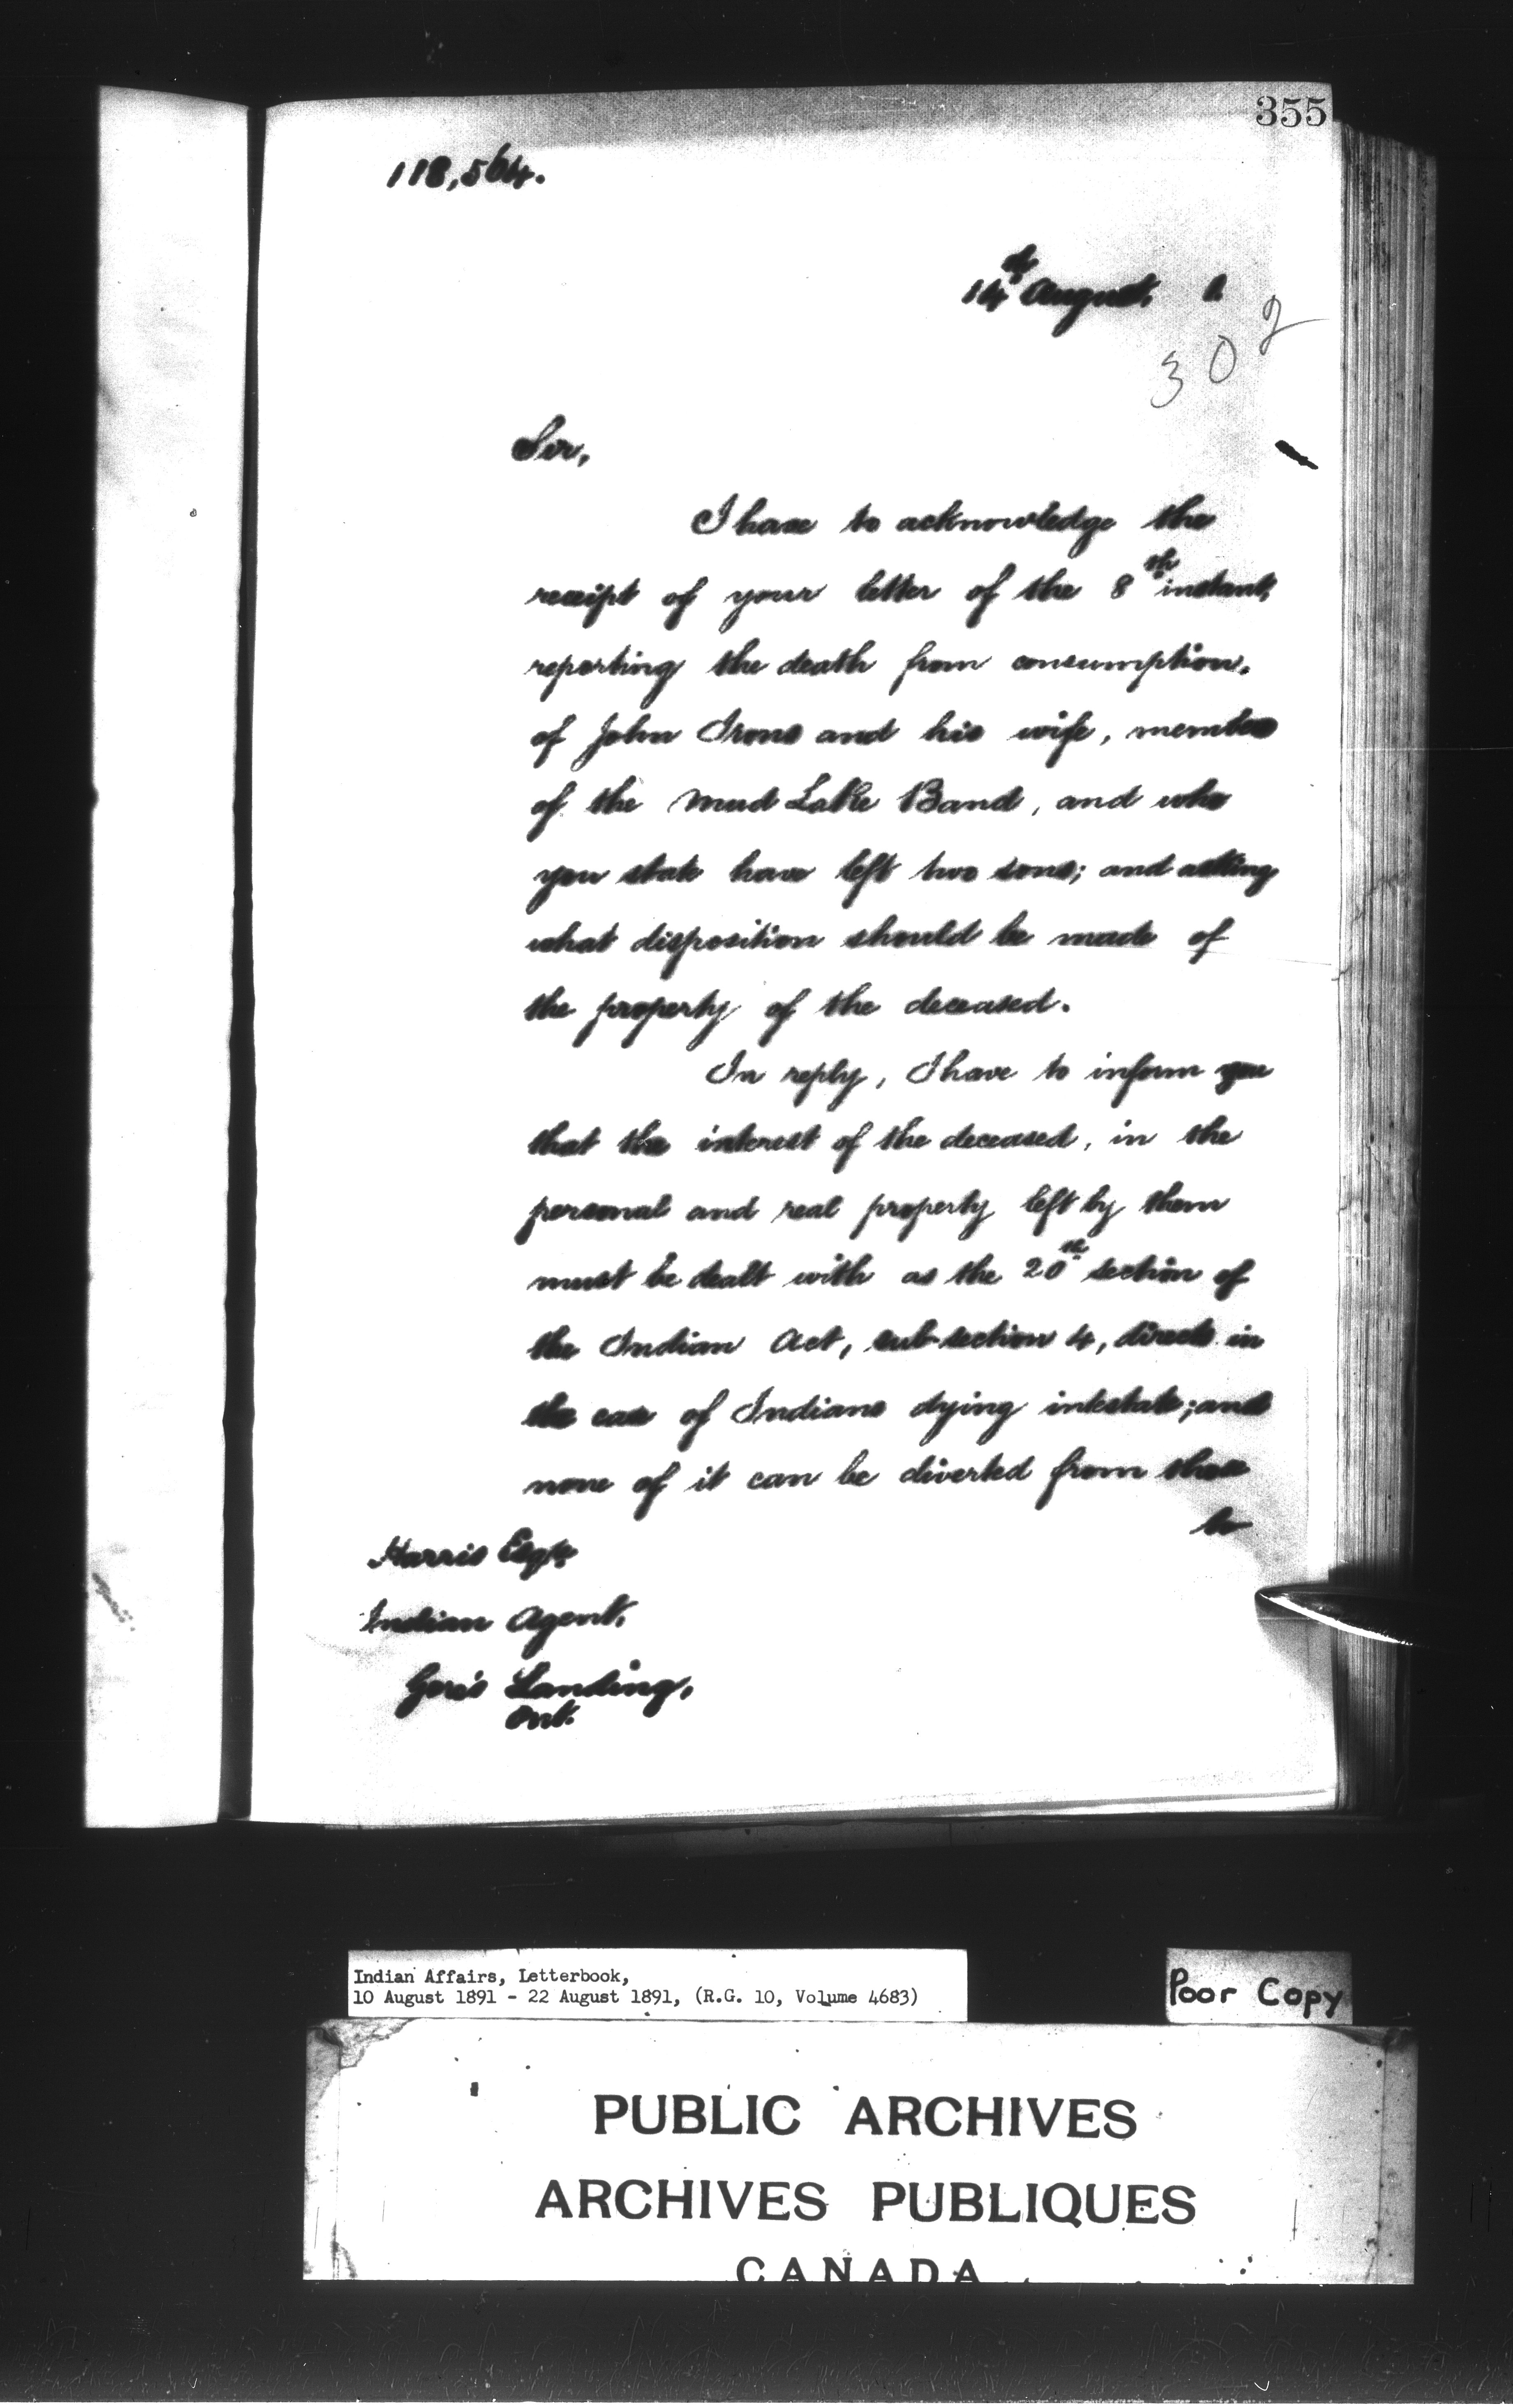 355
118,564.
14th August, 1
302
Sir,
I have to acknowledge the
receipt of your letter of the 8th instant,
reporting the death from consumption.
of John Irons and his wife, members
of the Mud Lake Band, and who
you state have left two sons; and asking
what disposition should be made of
the property of the deceased.
In reply, I have to inform you
that the interest of the deceased, in the
personal and real property left by them
must be dealt with as the 20th section of
the Indian Act, sub-section 4, directs in
the case of Indians dying intestate; and
none of it can be diverted from
to
Harris Esqr.
Indian Agent,
Gore's Landing,
Ont.
Indian Affairs, Letterbook,
10 August 1891 - 22 August 1891, (R.G. 10, Volume 4683)
Poor Copy
PUBLIC ARCHIVES
ARCHIVES PUBLIQUES
CANADA